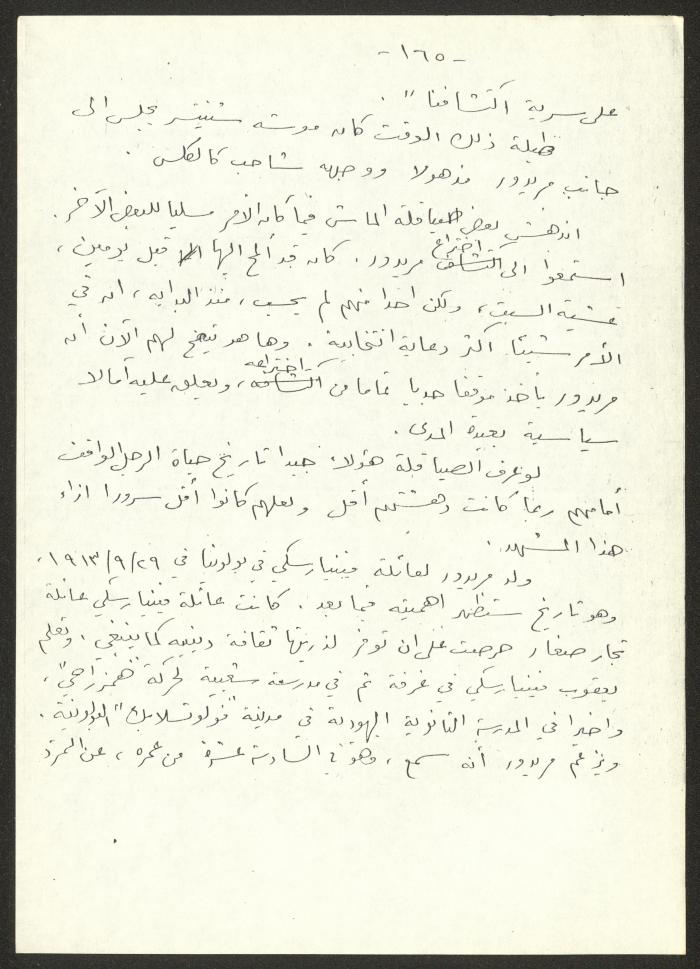 -١٦٥-
على سرية اكتشافنا".
طيلة ذلك الوقت كان موشه شنيتسر يجلس الى
جانب مريدور مذهولا ووجهه شاحب كالكلس.
اندهش بعض صياقلة الماس فيما كان الأمر مسليا للبعض الآخر.
استمعوا الى اختراع مريدور. كان قد ألمح اليها قبل يومين،
عشية السبت، ولكن احدا منهم لم يحسب، منذ البداية، ان في
الأمر شيئا أكثر دعاية انتخابية. وها هو يتضح لهم الآن أن
مريدور يأخذ موقفا جديا تماما من اختراعه، ويعلق عليه آمالا
سياسية بعيدة المدى.
لو عرف الصياقلة هؤلاء جيدا تاريخ حياة الرجل الواقف
أمامهم ربما كانت دهشتهم أقل ولعلهم كانوا أقل سرورا ازاء
هذا المشهد.
ولد مريدور لعائلة فينيارسكي في بولونيا في ١٩١٣/٩/٢٩،
وهو تاريخ ستظهر اهميته فيما بعد. كانت عائلة فينيارسكي عائلة
تجار صغار حرصت على ان توفر لذريتها ثقافة دينية كما ينبغي. وتعلم
يعقوب فينيارسكي في غرفة ثم في مدرسة شعبية لحركة "همزراحي"،
واخيرا في المدرسة الثانوية اليهودية في مدينة "فولوتسلابك" البولونية.
ويزعم مريدور أنه سمع، وهو في السادسة عشرة من عمره، عن التمرد